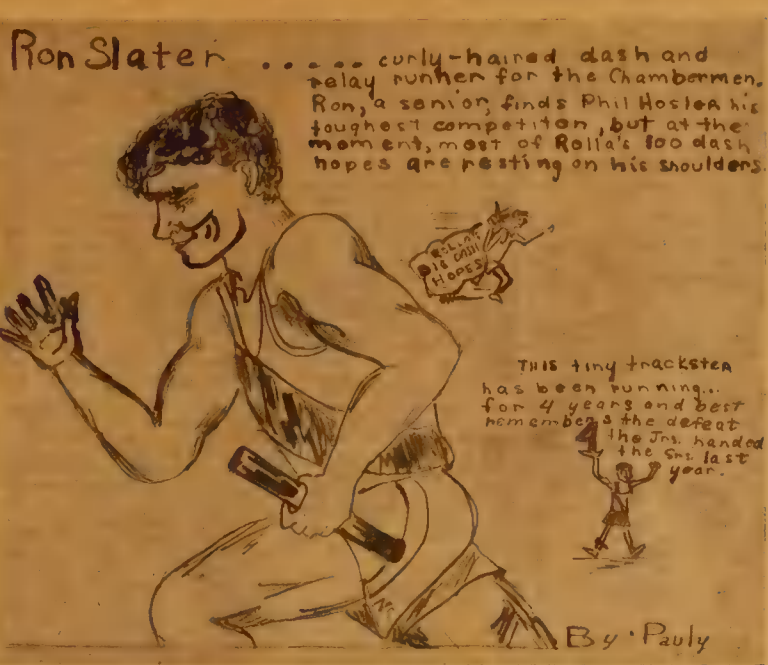 Ron Slater ..... curly-haired dash and
relay runner for the Chambermen.
Ron, a senior, finds Phil Hosler his
toughest competiton, but at the
moment, most of Rolla's 100 dash
hopes are resting on his shoulders.
ROLLA'S
DASH
HOPES
THIS tiny trackster
has been running...
for 4 years and best
remembers the defeat
the Jrs. handed
the Srs. last
year.
4
By Pauly